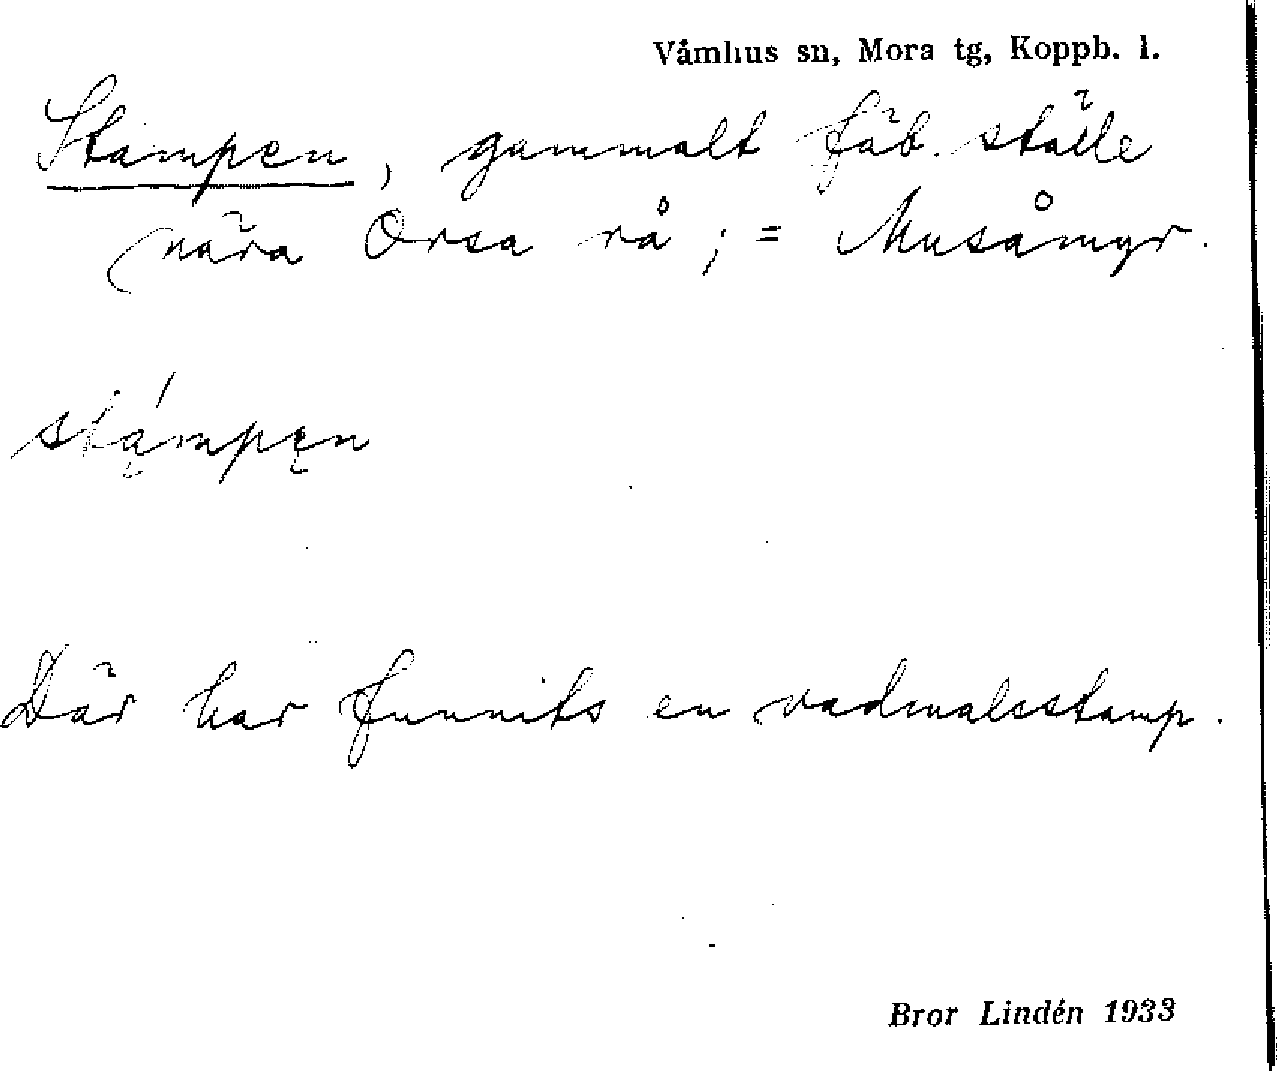 Våmhus sn, Mora tg, Koppb. l.
Stampen, gammalt fäb. ställe
nära Orsa rå ; = Musåmyr.
stą́mpęn
Där har funnits en vadmalsstamp.
Bror Lindén 1933